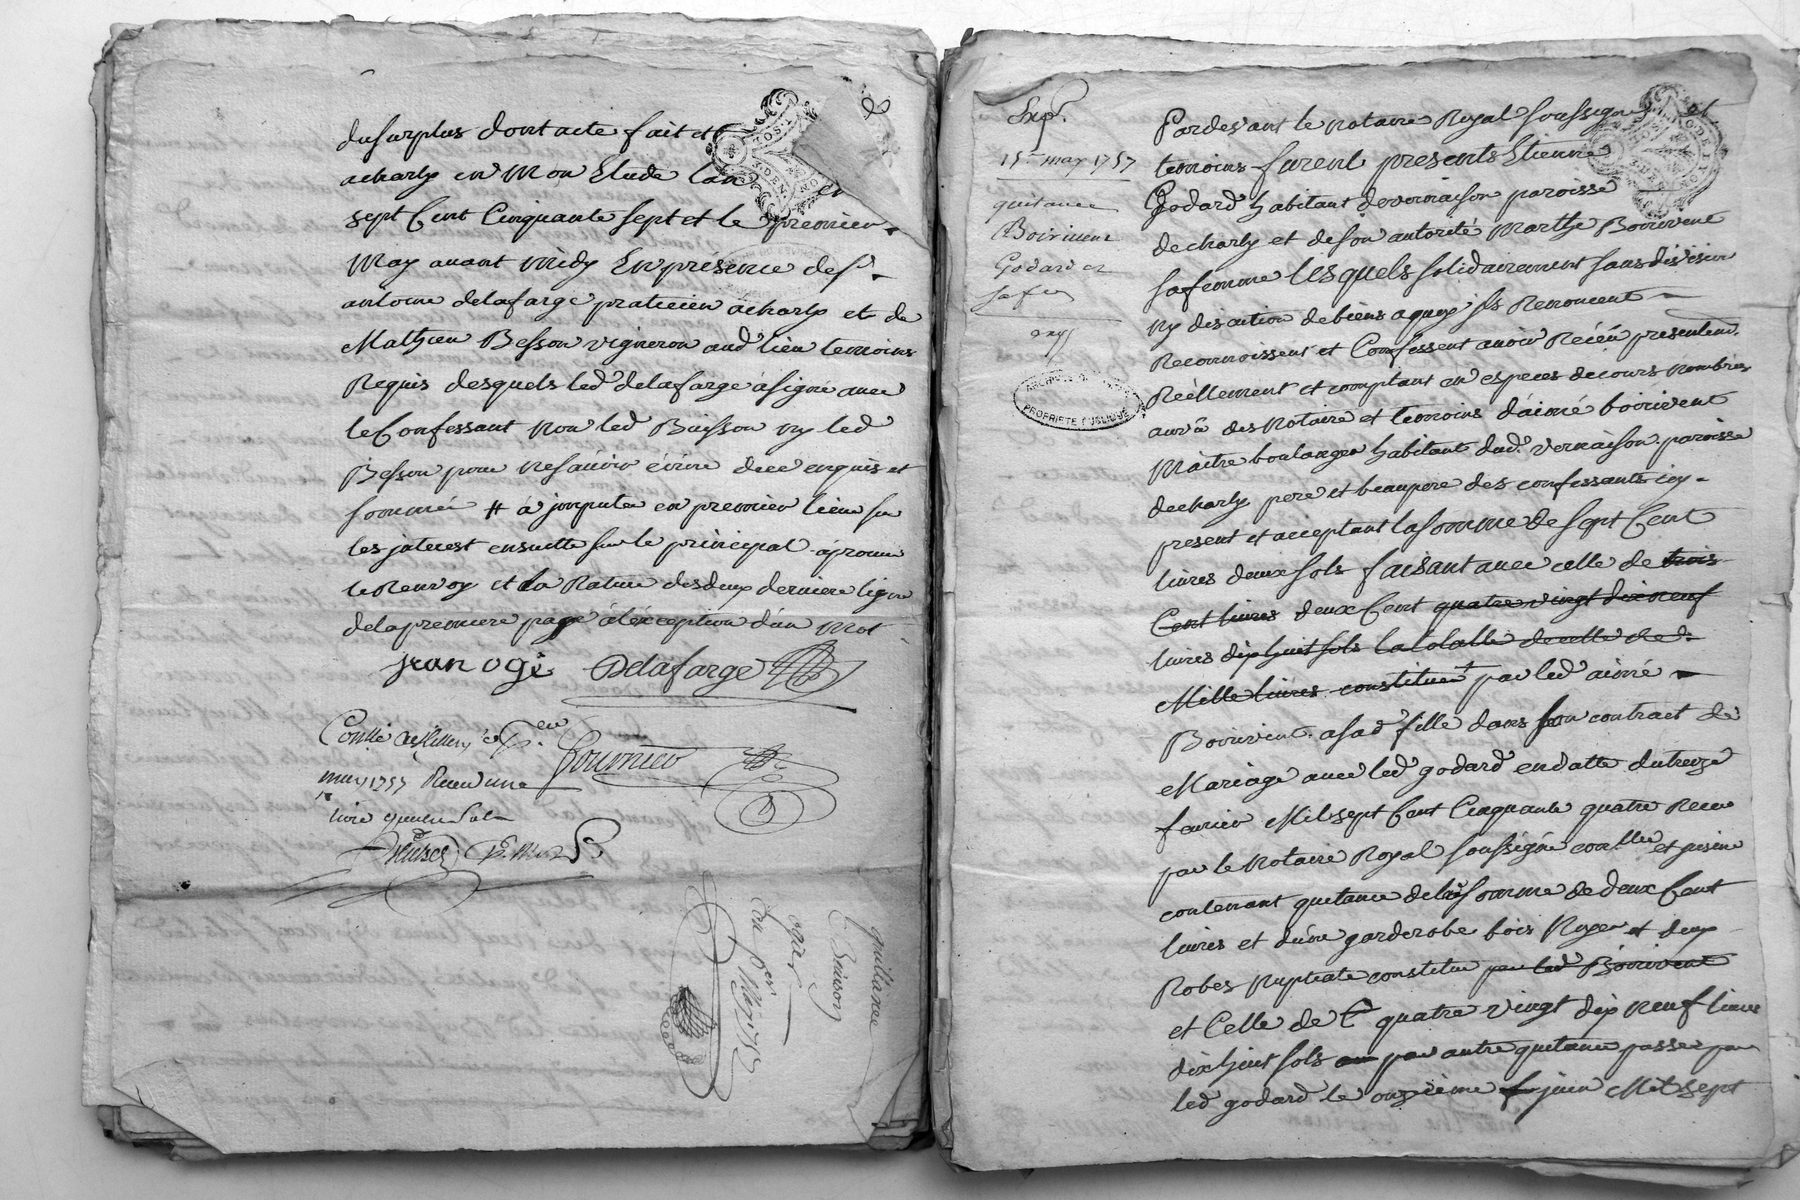 du surplus dont acte fait et
a charly en mon Etude l'an
sept Cent Cinquante sept et le premier
May avant midy En presence de sr
antoine delafarge praticien a charly et de
Mathieu Besson vigneron aud. lieu temoins
Requis desquels led. delafarge a signé avec
le Confessant non led. Buisson ny led.
Besson pour ne sauoir écrire de ce enquis et
sommé # à jmputer en premier lieu sur
les jnterest ensuitte sur le principal aprouué
le Renvoy et la Rature des deux derniere ligne
de la premiere page à l'éxception d'un mot
jean ogi Delafarge
Fournier
may 1757 Receu une
livre
quittance
Buisson
ogier
du 1er May 1757
Exp.
15 may 1757
quitance
Boirivent
Godard et
sa fe
Pardevant le notaire Royal soussigné et
temoins furent presents Etienne
Godard habitant de vernaison paroisse
de charly et de son autorité Marthe Boirivent
sa femme lesquels solidairement sans division
ny discution de biens a quoy jls Renoncent
Reconnoissent et Confessent avoir Recéu presentem.
Réellement et comptant en especes de cours nombrés
aux des Notaire et temoins d'aimé boirivent
Maitre boulanger habitant dud. vernaison paroisse
de charly pere et beaupere des confessants cy
present et acceptant la somme de sept Cent
livres deux sols faisant avec celle de trois
Cent livres deux Cent quatre vingt dix neuf
livres dix huit sols la totalle de celle de
Mille livres constitués par led. aimé
Boirivent a sad. fille dans son contract de
Mariage avec led. godard en datte du treize
fevrier Mil sept Cent Cinquante quatre Receu
par le Notaire Royal soussigné
contenant quitance de la somme de deux Cent
livres et d'une garderobe bois Noyer et deux
Robes Nuptiale constitue par led. Boirivent
et Celle de C quatre vingt dix neuf livres
dix huit sols par autre quitance passée par
led. godard le onzieme juin Mil sept